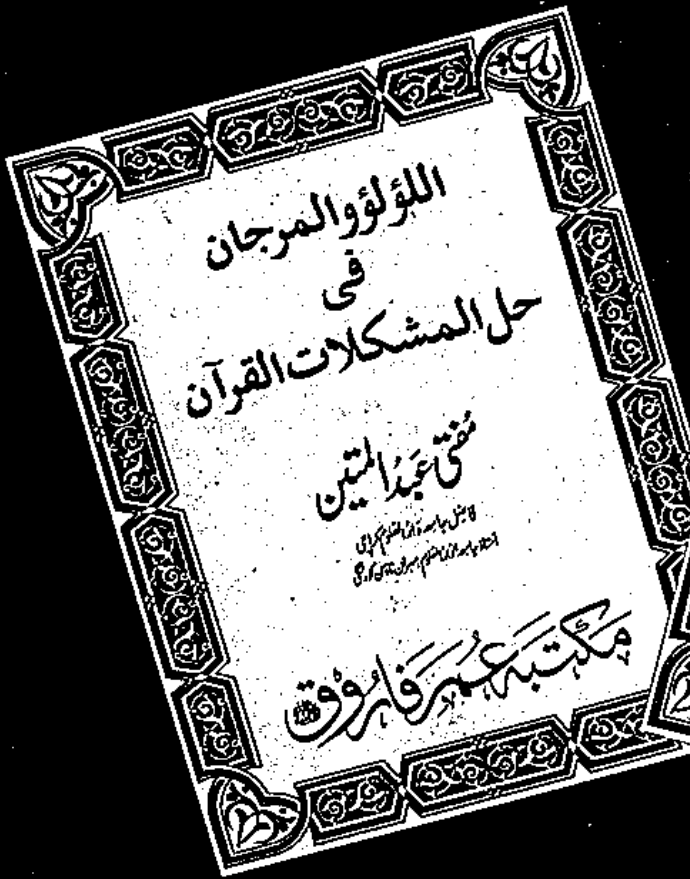 اللؤلؤ والمرجان
فی
حل المشکلات القرآن
مفتی عبد المتین
فاضل جامعہ دار العلوم کراچی
استاد جامعہ
مکتبہ عمر فاروق